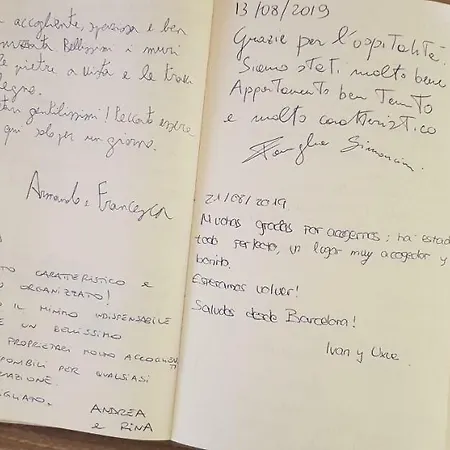 accogliente, spaziosa e ben
Bellissimi i muri
pietre a vista e le travi
legno.
gentilissimi! Peccato essere
qui solo per un giorno.
Armando e Francesca
TO CARATTERISTICO e
ORGANIZZATO!
IL MINIMO INDISPENSABILE
E UN BELLISSIMO
PROPRIETARI MOLTO ACCOGLIENTI
PONIBILI PER QUALSIASI
AZIONE.
IGLIATO.
ANDREA
e RINA
13/08/2019
Grazie per l'ospitalità.
Siamo stati molto bene
Appartamento ben tenuto
e molto caratteristico
Famiglia Simoncini.
21/08/2019
Muchas gracias por acogernos; ha estado
todo perfecto, un lugar muy acogedor y
bonito.
Esperamos volver!
Saludos desde Barcelona!
Ivan y Uxue.